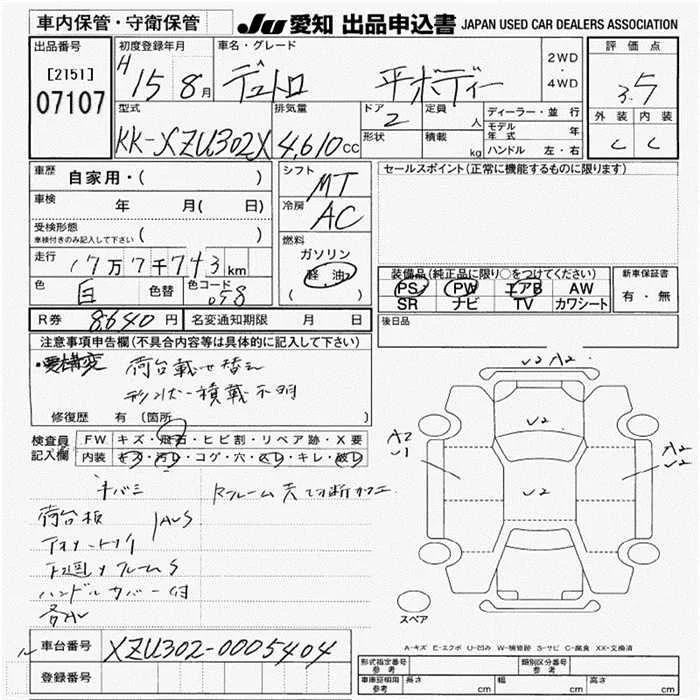 車内保管・守衛保管
JU 愛知 出品申込書 JAPAN USED CAR DEALERS ASSOCIATION
出品番号
[2151]
07107
初度登録年月
H 15 8月
車名・グレード
デュトロ 平ボディー
2WD
・
4WD
評価点
3.5
外装 内装
C C
型式
KK-XZU302X
排気量
4,610cc
ドア
2
定員
人
形状
積載
kg
ディーラー・並行
モデル年式 年
ハンドル 左・右
車歴 自家用・( )
車検 年 月( 日)
受検形態 ( )
車検付きのみ記入して下さい
走行 17万7千743km
色 白 色替 色コード 058
シフト
MT
冷房
AC
燃料
ガソリン
軽油
( )
セールスポイント(正常に機能するものに限ります)
装備品(純正品に限り○をつけてください)
PS PW エアB AW
SR ナビ TV カワシート
新車保証書
有・無
R券 8,640円 名変通知期限 月 日
後日品
注意事項申告欄(不具合内容等は具体的に記入して下さい)
・要構変 荷台載せ替え
形状・積載不明
修復歴 有(箇所 )
検査員記入欄
FW キズ・飛石・ヒビ割・リペア跡・X要
内装 キズ・汚レ・コゲ・穴・スレ・キレ・破レ
荷台板
下廻りフレームS
ハンドルカバー付
√3 A2
√2
A2
√1
√2
A2
√2
スペア
A-キズ E-エクボ U-凹み W-補修跡 S-サビ C-腐食 XX-交換済
車台番号 XZU302-0005404
登録番号
形式指定番号 参考
類別区分番号 参考
車庫証明用 参考 長さ cm 幅 cm 高さ cm